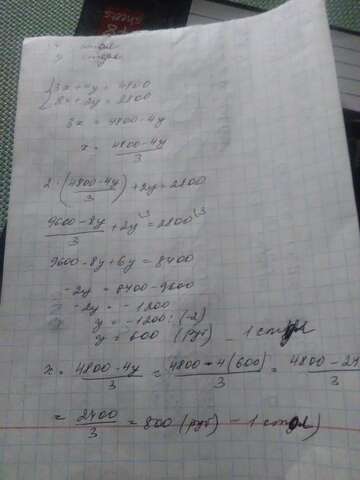 x стол
y стул
{ 3x + 4y = 4800
2x + 2y = 2800
3x = 4800 - 4y
x = (4800 - 4y)/3
2 · ((4800 - 4y)/3) + 2y = 2800
(9600 - 8y)/3 + 2y^{\3} = 2800^{\3}
9600 - 8y + 6y = 8400
-2y = 8400 - 9600
-2y = -1200
y = -1200 : (-2)
y = 600 (руб) - 1 стул
x = (4800 - 4y)/3 = (4800 - 4(600))/3 = (4800 - 24)/3
= 2400/3 = 800 (руб) - 1 стол)